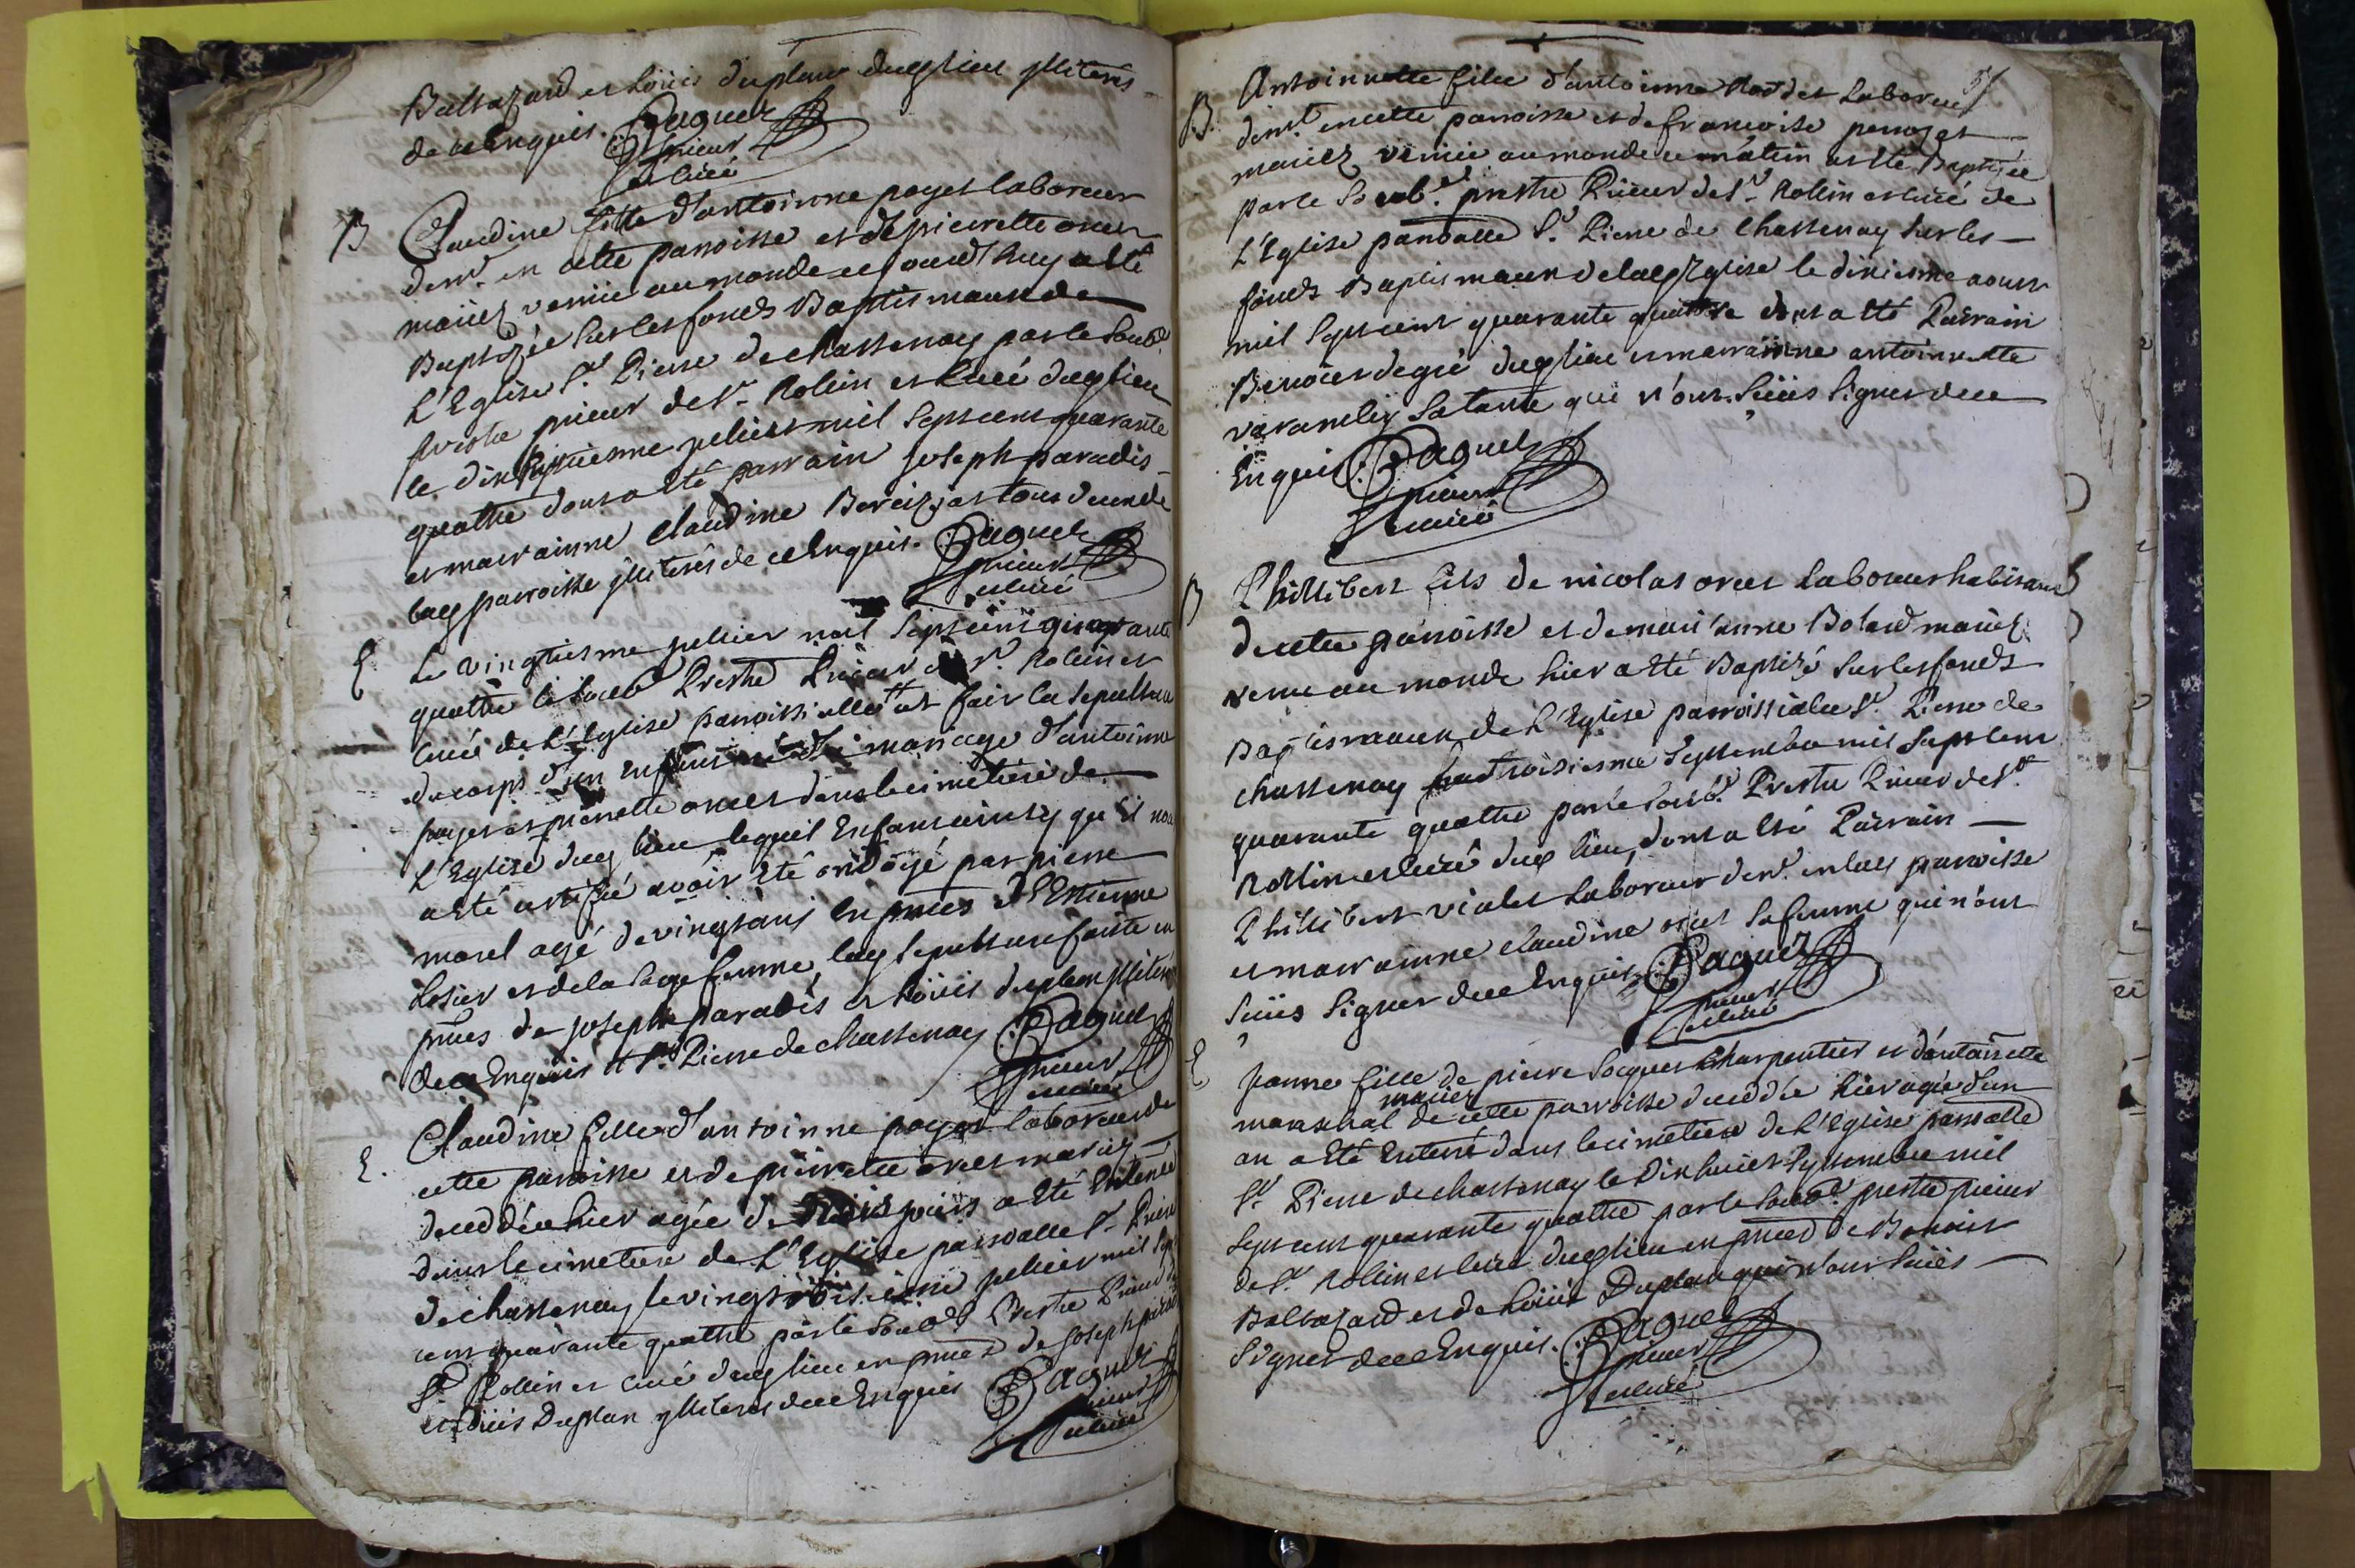 Baltazard et Loüis duplan dudt lieu illiterés
de ce Enquis. Paquez
prieur
et curé
B Claudine fille d'antoinne payet laboreur
demt. en cette parroisse et de pierrette ovet
mariez venüe au monde ce jourd'huy a eté
Baptizée sur les fonds Baptismaux de
L'Eglise St. Pierre de chassenay par le soubd.
prestre prieur de St. Rollin et Curé dudt lieu
le dix huitiesme juliet mil sept cent quarante
quattre dont a eté parrain joseph paradis
et marrainne Claudine tous deux de
lad parroisse illiterés de ce Enquis. Paquez
prieur
et curé
E. Le vingtiesme juliet mil sept cent quarante
quattre le soubd. Prestre Prieur de St. Rollin et
Curé de L'Eglise parroissialle at fait la sepulture
du corps d'un Enfant né du mariage d'antoinne
payet et pierrette ovet dans le cimetiere de
L'Eglise dudt lieu lequel Enfant ainsy qu'il nous
a eté certifié avoir Eté ondoyé par pierre
morel agé de vingt ans en pnces d'Ettienne
Losier et de la sage femme, lad sepulture faitte en
pnces de joseph paradis et Loüis duplan illiterés
de ce Enquis St. Pierre de chassenay Paquez
prieur
et curé
E. Claudine fille d'antoinne payet laboreur de
cette parroisse et de pierrette ovet mariez
decedée hier agée de trois jours a eté Enterrée
dans le cimetiere de L'Eglise parroalle St. Pierre
de chassenay le vingt troisieme juliet mil sept
cent quarante quattre par le soubd. Prestre Prieur de
St. Rollin et curé dudt lieu en pnces de joseph paradis
et Loüis Duplan illiterés de ce Enquis Paquez
prieur
et curé
B. Antoinnette fille d'antoinne laboreur
demt. en cette parroisse et de francoise perroset
mariez venüe au monde ce matin at eté Baptizée
par le soub.d prestre Prieur de St. Rollin et curé de
L'Eglise parroalle St. Pierre de Chassenay sur les
fonds Baptismaux de lad Eglise le dixiesme aoust
mil sept cent quarante quattre dont a eté Parrain
Benoist degré dudt lieu et marrainne antoinnette
sa tante qui n'ont sceüs signer de ce
Enquis. Paquez
prieur
et curé
B Phillibert fils de nicolas ovet laboreur habitant
de cette parroisse et de marianne Bolard mariez
venu au monde hier a eté Baptizé sur les fonds
Baptismaux de L'Eglise parroissialle St. Pierre de
chassenay troisiesme septembre mil sept cent
quarante quattre par le soub.d Prestre Prieur de St.
Rollin et curé dudt lieu, dont a eté Parrain
Phillibert violet laboreur demt. en lad parroisse
et marrainne claudine ovet sa femme qui n'ont
sceüs signer de ce Enquis. Paquez
prieur
et curé
E Janne fille de pierre Charpentier et d'antoinette
mariez
mareschal de cette parroisse decedée hier agée d'un
an a eté Enterré dans le cimetiere de L'Eglise parroalle
St. Pierre de chassenay le dix huict septembre mil
sept cent quarante quattre par le soub.d prestre prieur
de St. Rollin et curé dudt lieu en pnces de Benoist
Baltazard et de Loüis Duplan qui n'ont sceüs
signer de ce Enquis. Paquez
prieur
et curé